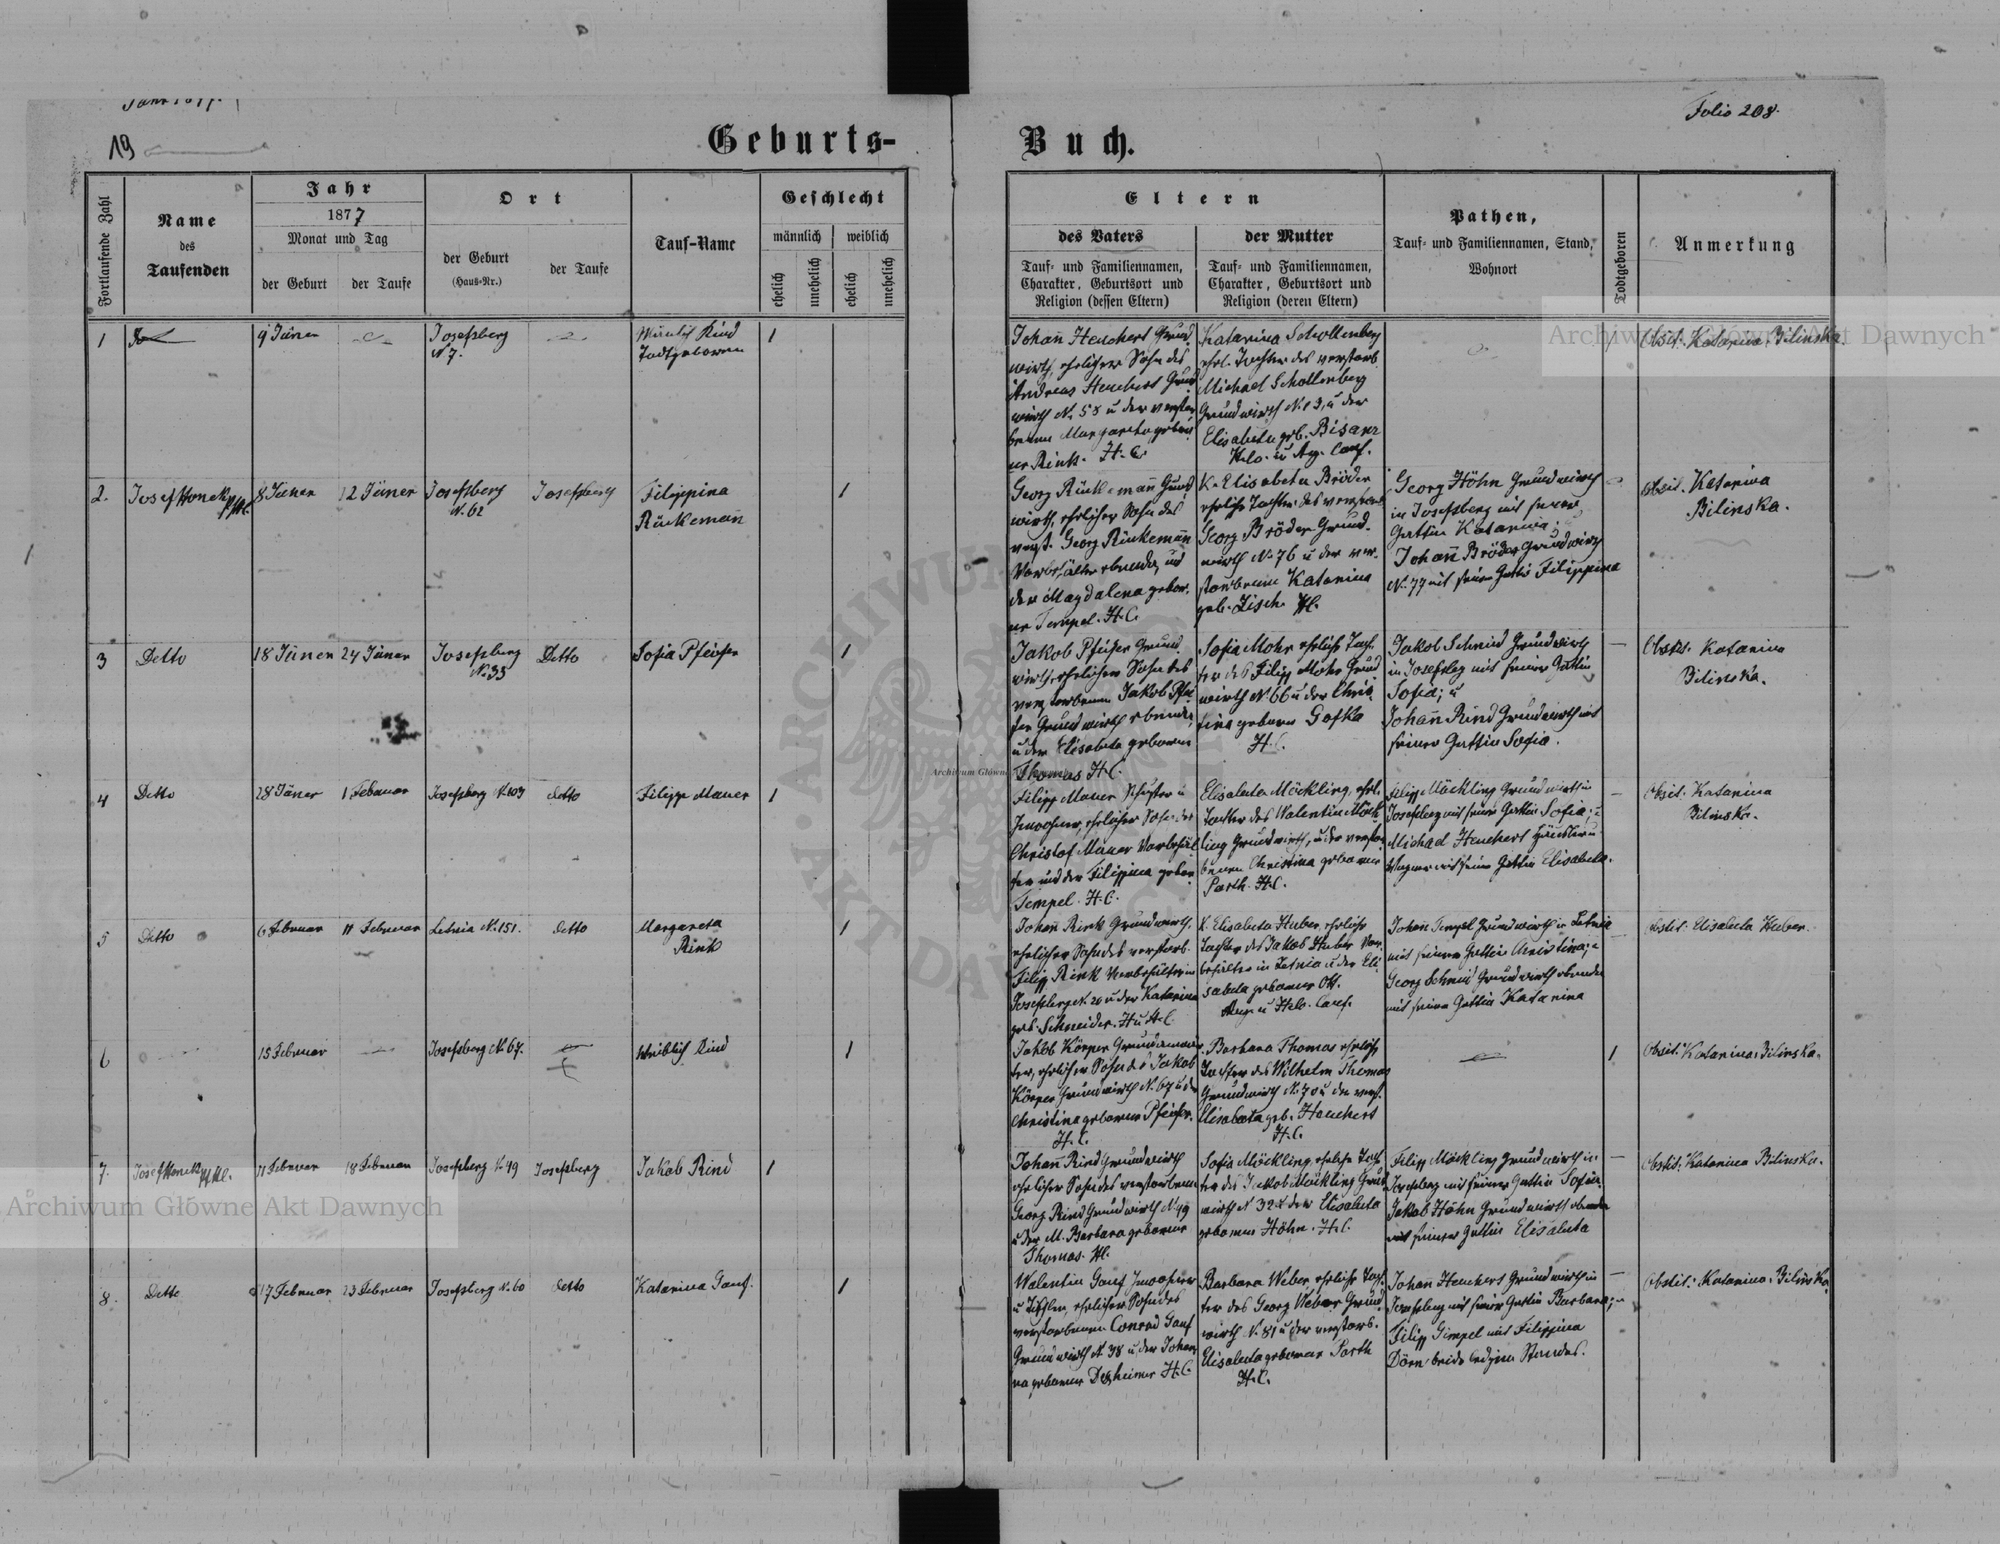 Jahr 1877.
19
Folio 208.
Geburts-Buch.
Fortlaufende Zahl
Name
des
Taufenden
Jahr
1877
Monat und Tag
der Geburt
der Taufe
Ort
der Geburt
(Haus-Nr.)
der Taufe
Tauf-Name
Geschlecht
männlich
weiblich
ehelich
unehelich
ehelich
unehelich
Eltern
des Vaters
Tauf- und Familiennamen,
Charakter, Geburtsort und
Religion (dessen Eltern)
der Mutter
Tauf- und Familiennamen,
Charakter, Geburtsort und
Religion (deren Eltern)
Pathen,
Tauf- und Familiennamen, Stand,
Wohnort
Todtgeboren
Anmerkung
1
9 Jäner
Josefsberg
N 7.
Männlich Kind
Todtgeboren
1
Johann Heuchert Grund
wirth, ehelicher Sohn des
Andreas Heuchert Grund
wirth N. 58 u der verstor
benen Margareta gebor
ner Rink. H. C.
Katarina Schollenberg
ehel. Tochter des verstorb
Michael Schollenberg
Grundwirth N. 13, u der
Elisabeta geb. Bisanz
Helv. u Aug. Conf.
1
Obstt. Katarina Bilinska
2.
Josef Honek
8 Jäner
12 Jäner
Josefsberg
N. 62
Josefsberg
Filippina
Rückemann
1
Georg Rückemann Grund
wirth, ehelicher Sohn des
verst. Georg Rinkemann
Vorbehälter ebenda, und
der Magdalena gebor.
ner Tempel. H. C.
K. Elisabeta Bröder
eheliche Tochter des verstorb
Georg Bröder Grund-
wirth N. 76 u der ver-
storbenen Katarina
geb. Zisch. H.
Georg Höhn Grundwirth
in Josefsberg mit seiner
Gattin Katarina;
Johann Bröder Grundwirth
N. 77 mit seiner Gattin Filippina
Obstt. Katarina
Bilinska.
3
Detto
18 Jäner
24 Jäner
Josefsberg
N. 35
Detto
Sofia Pfeifer
1
Jakob Pfeifer Grund
wirth, ehelicher Sohn des
verstorbenen Jakob Pfei
fer Grundwirth ebenda,
u der Elisabeta geborner
Thomas H. C.
Sofia Mohr eheliche Toch
ter des Filipp Mohr Grund
wirth N. 66 u der Chris
tina geborn Gofka
H. C.
Jakob Schmid Grundwirth
in Josefsbg mit seiner Gattin
Sofia; u
Johann Rind Grundwirth mit
seiner Gattin Sofia.
Obstt. Katarina
Bilinska.
4
Detto
28 Jäner
1 Februar
Josefsberg N. 103
detto
Filipp Mauer
1
Filipp Mauer Schuster u
Inwohner, ehelicher Sohn des
Christof Mauer Vorbehäl
ter und der Filippina gebor
Tempel. H. C.
Elisabeta Möckling, ehel.
Tochter des Valentin Möck
ling Grundwirth, u der verstor
benen Christina geborner
Parth. H. C.
Filipp Möckling Grundwirth in
Josefsberg mit seiner Gattin Sofia; u
Michael Heuchert Häusler u
Wagner mit seiner Gattin Elisabeta.
Obstt. Katarina
Bilinska.
5
Detto
6 Februar
11 Februar
Letnia N. 151.
detto
Margareta
Rink
1
Johann Rink Grundwirth.
ehelicher Sohn des verstorb.
Filipp Rink Vorbehälter in
Josefsberg N. 20 u der Katarina
geb. Schneider. H u H. C.
K. Elisabeta Huber eheliche
Tochter des Jakob Huber Vor
behälter in Letnia u der Eli
sabeta geborner Ott.
Aug. u Helv. Conf.
Johann Tempel Grundwirth in Letnia
mit seiner Gattin Christina; u
Georg Schmid Grundwirth ebenda
mit seiner Gattin Katarina
Obstt. Elisabeta Huber.
6
15 Februar
Josefsberg N. 67.
Weiblich Kind
1
Jakob Körper
ter, ehelicher Sohn des Jakob
Körper Grundwirth N. 67 u der
Christina geborner Pfeifer.
H. C.
Barbara Thomas eheliche
Tochter des Wilhelm Thomas
Grundwirth N. 70 u der verst.
Elisabeta geb. Heuchert
H. C.
1
Obstt. Katarina Bilinska.
7.
Josef Honek
11 Februar
18 Februar
Josefsberg N. 49
Josefsberg
Jakob Rind
1
Johann Rind Grundwirth
ehelicher Sohn des verstorbenen
Georg Rind Grundwirth N. 49
u der M. Barbara geborner
Thomas. H.
Sofia Möckling, eheliche Toch
ter des Jakob Möckling Grund
wirth N. 32 u der Elisabeta
geborner Höhn. H. C.
Filipp Möckling Grundwirth in
Josefsberg mit seiner Gattin Sofia.
Jakob Höhn Grundwirth ebenda
mit seiner Gattin Elisabeta
Obstt. Katarina Bilinska.
8.
Detto
17 Februar
23 Februar
Josefsberg N. 60
detto
Katarina Ganf.
1
Valentin Ganf Inwohner
u Tischler, ehelicher Sohn des
verstorbenen Conrad Ganf
Grundwirth N. 38 u der Johan
na geborner Dexheimer H. C.
Barbara Weber eheliche Toch
ter des Georg Weber Grund
wirth N. 81 u der verstorb.
Elisabeta geborner Parth
H. C.
Johann Heuchert Grundwirth in
Josefsberg mit seiner Gattin Barbara; u
Filipp Gimpel mit Filippina
Dörn beide ledigen Standes.
Obstt. Katarina Bilinska
Archiwum Główne Akt Dawnych
Archiwum Główne Akt Dawnych
Archiwum Główne
ARCHIWUM
AKT DAWNYCH